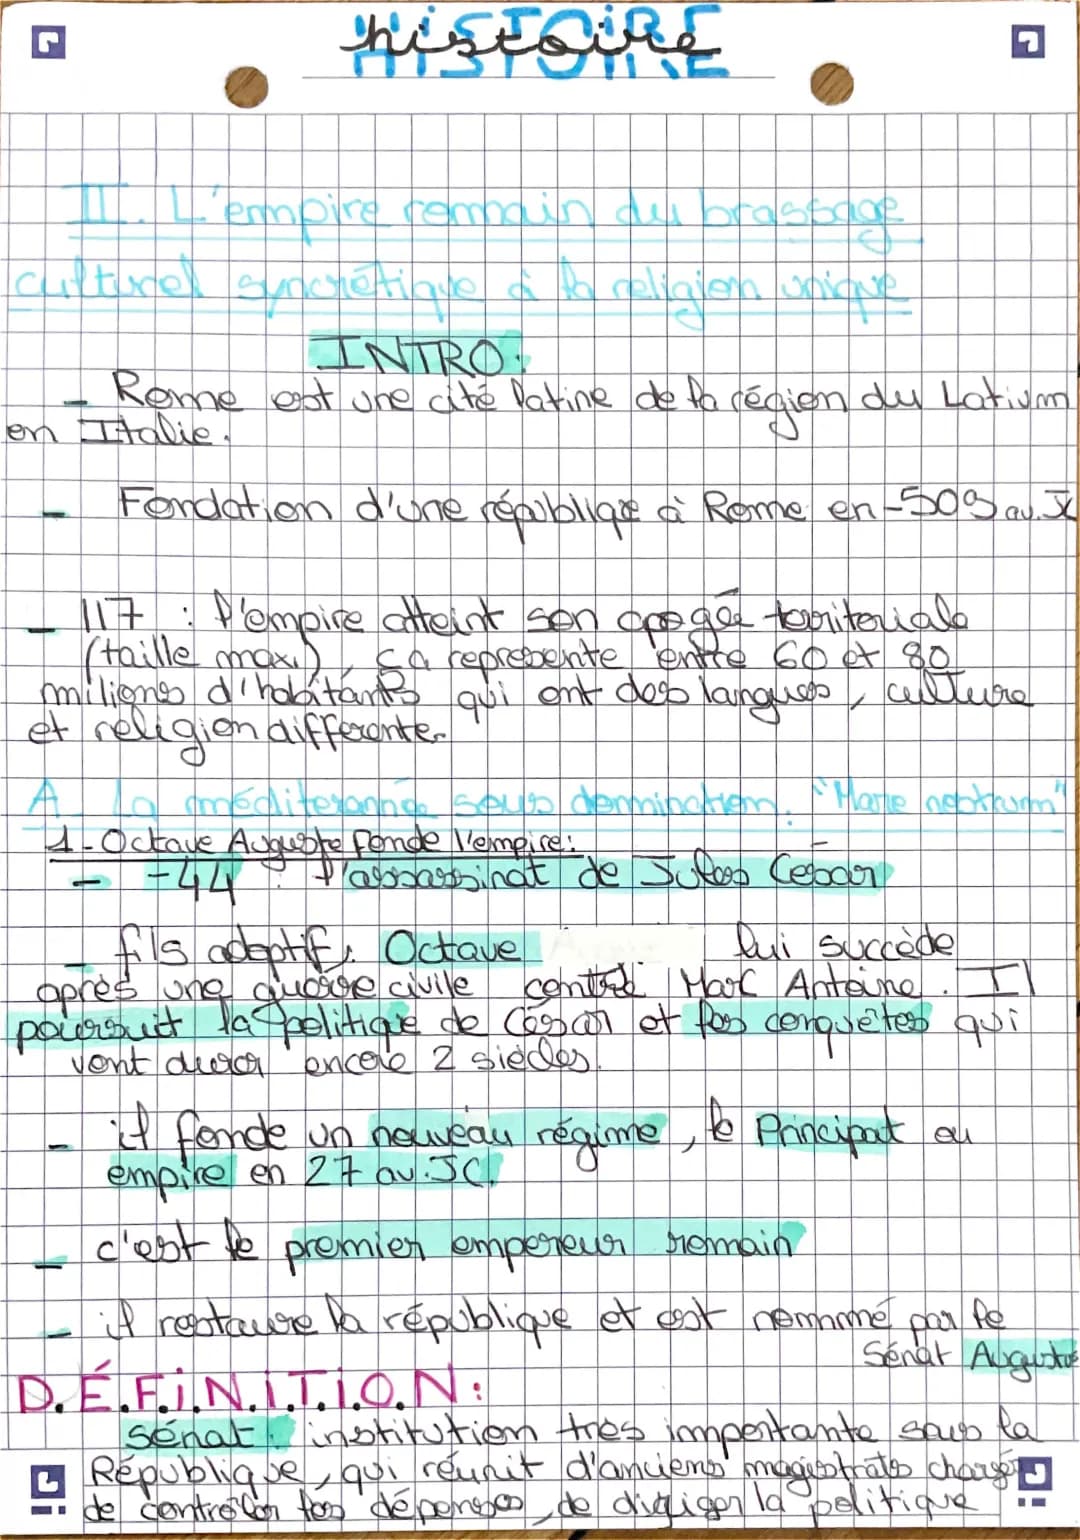 histoire
HISTOIRE
II. L'empire romain du brassage
culturel syncrétique à la religion unique
INTRO.
- Rome est une cité latine de la région du Latium
en Italie.
- Fondation d'une république à Rome en -509 av. J
- 117 : l'empire atteint son apogée territoriale
(taille max.), ça represente entre 60 et 80
milions d'habitants qui ont des langues, culture
et religion differente.
A. La méditerannée sous domination. "Mare nostrum"
1 - Octave Auguste fonde l'empire:
- -44 : l'assassinat de Jules César
- fils adoptif, Octave lui succède
après une guerre civile contre Marc Antoine. Il
poursuit la politique de César et les conquêtes qui
vont durer encore 2 siècles.
- il fonde un nouveau régime, le Principat ou
empire en 27 av. JC.
- c'est le premier empereur romain
- il restaure la république et est nommé par le
Sénat Auguste
D.É.F.I.N.I.T.I.O.N:
Sénat: institution très importante sous la
République, qui réunit d'anciens magistrats chargés
de contrôler les dépenses, de diriger la politique